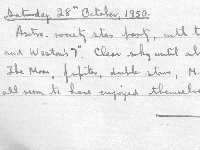 Saturday 28th October, 1950.
Astro. society star party, with t
and Weston's 9". Clear sky until a
The Moon, Jupiter, double stars, M.
all seem to have enjoyed themselve